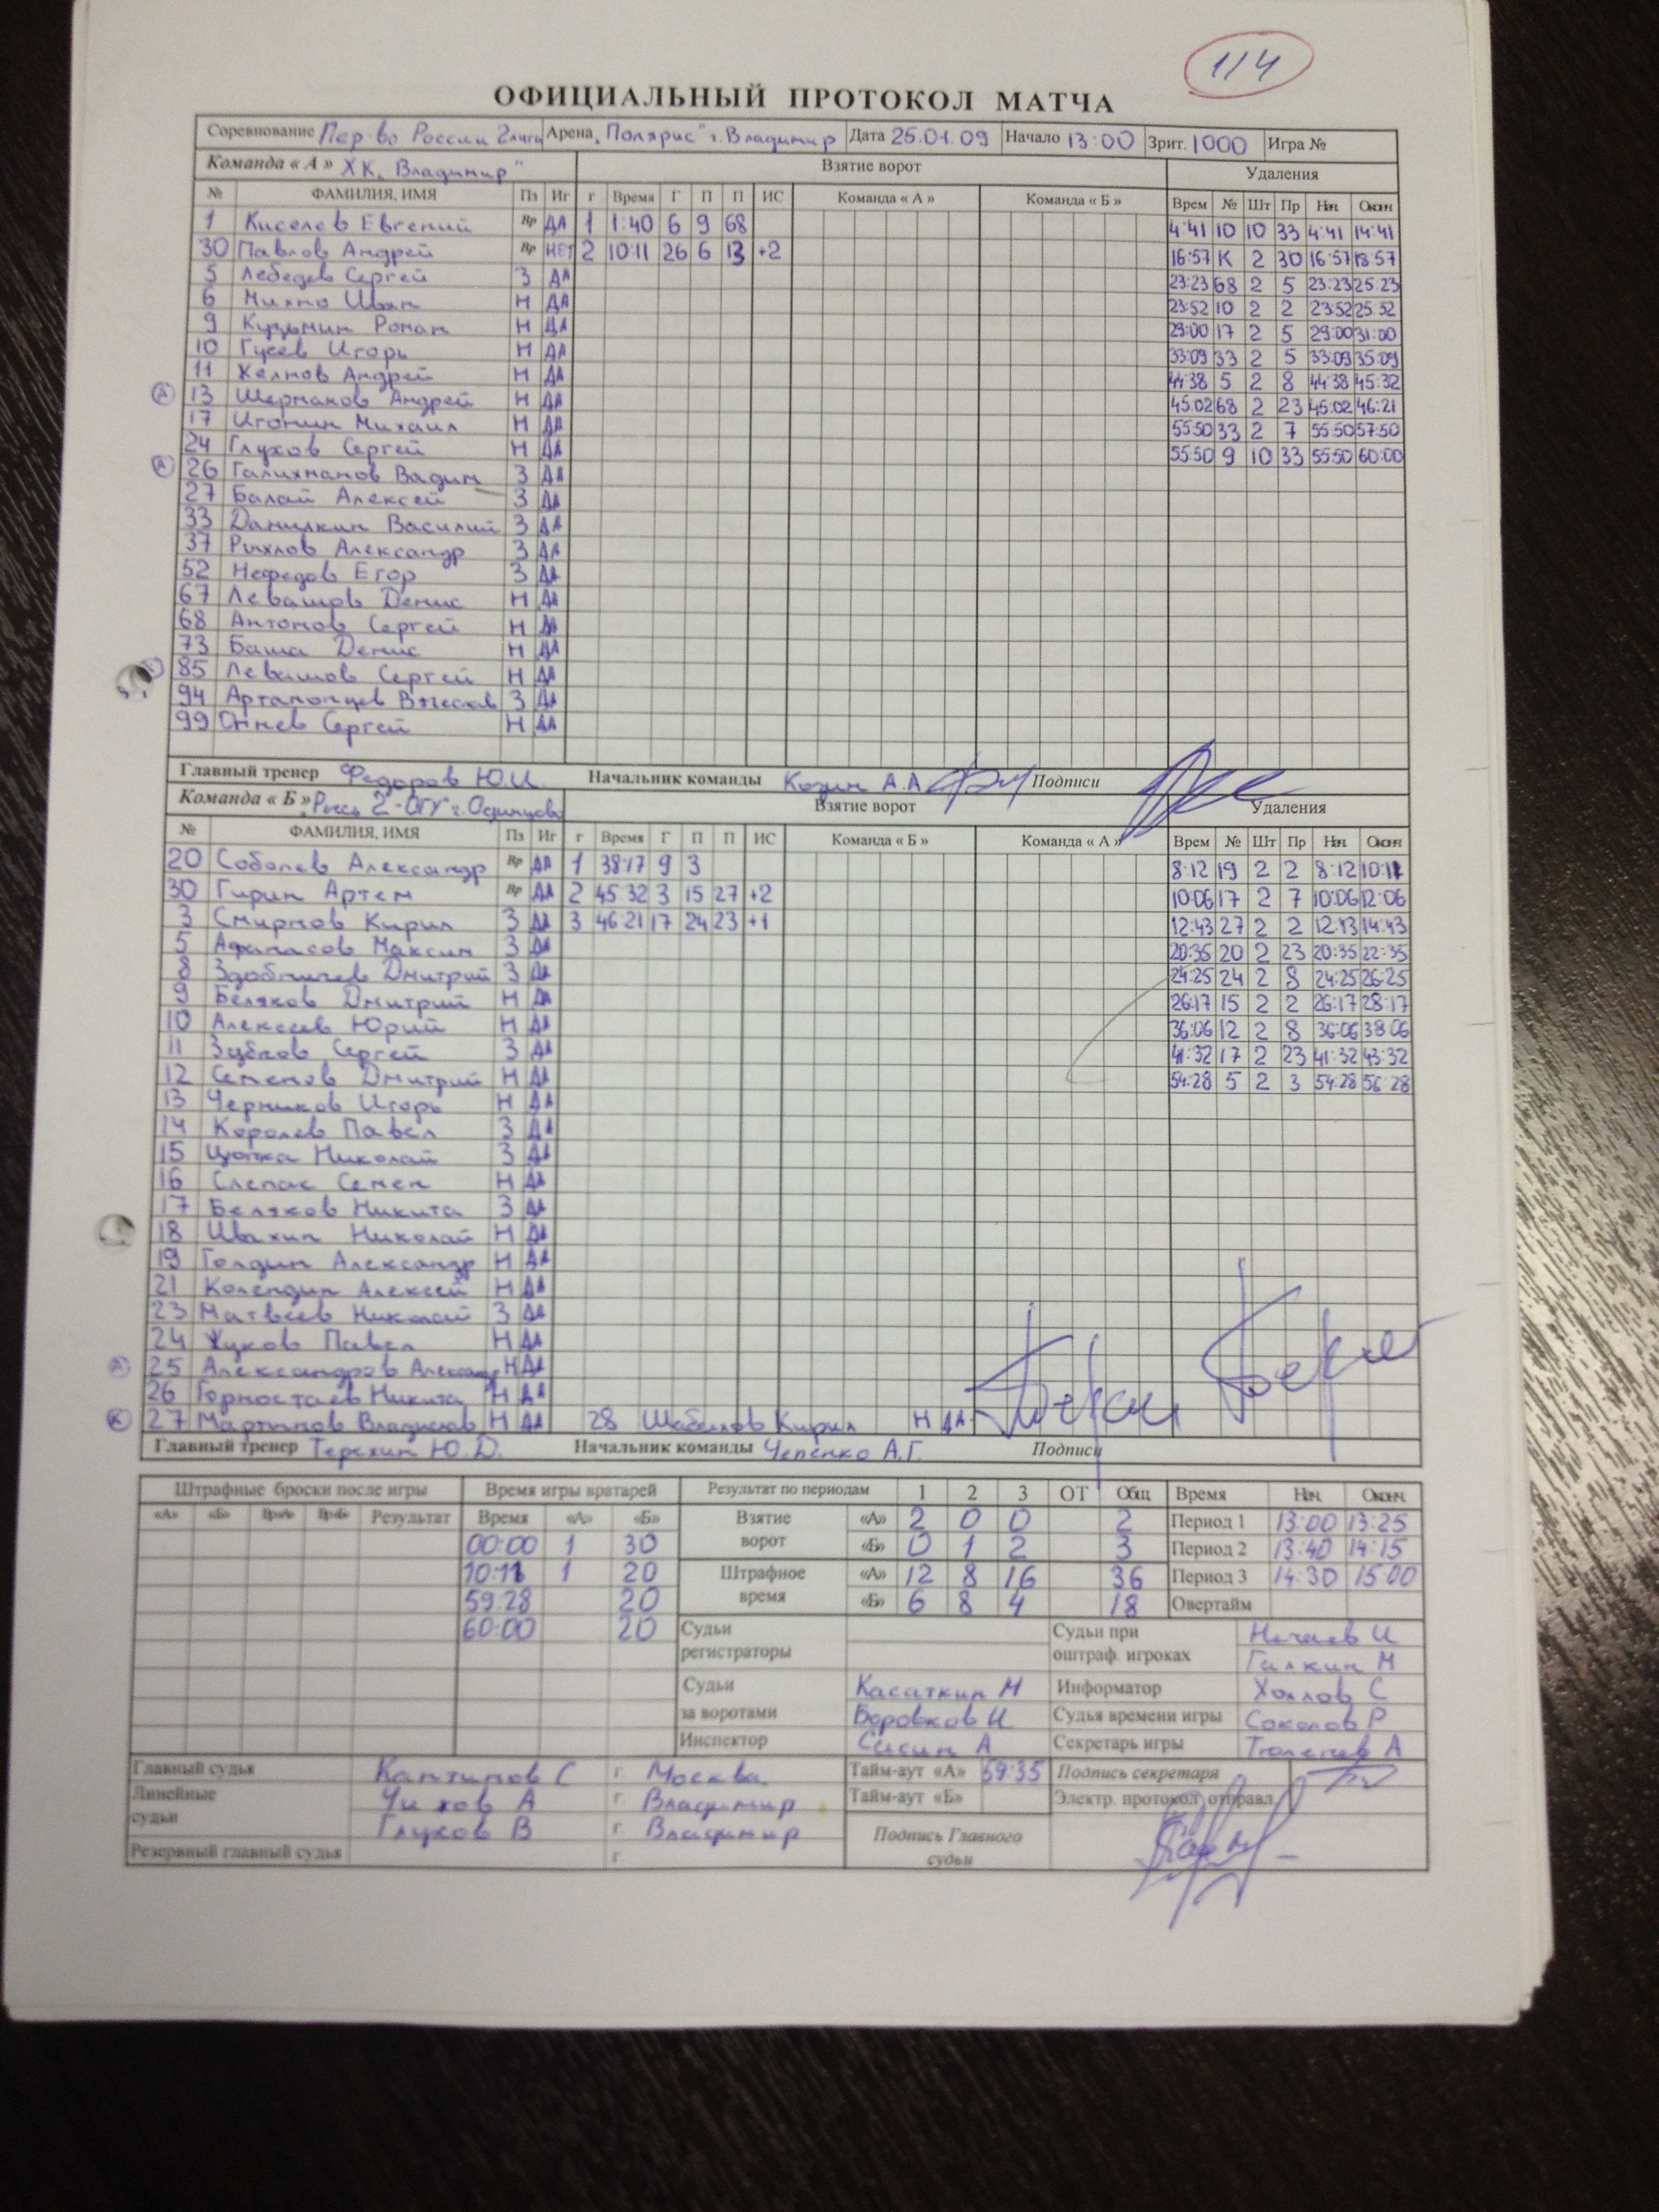 114
ОФИЦИАЛЬНЫЙ ПРОТОКОЛ МАТЧА
Соревнование Пер-во России 2 лига Арена „Полярис" г. Владимир Дата 25.01.09 Начало 13:00 Зрит. 1000 Игра №
Команда « А » ХК „Владимир" Взятие ворот Удаления
№ ФАМИЛИЯ, ИМЯ Пз Иг г Время Г П П ИС Команда « А » Команда « Б » Врем № Шт Пр Нач Оконч
1 Киселев Евгений Вр ДА 1 1:40 6 9 68 4:41 10 10 33 4:41 14:41
30 Павлов Андрей Вр НЕТ 2 10:11 26 6 13 +2 16:57 К 2 30 16:57 18:57
5 Лебедев Сергей З ДА 23:23 68 2 5 23:23 25:23
6 Михно Иван Н ДА 23:52 10 2 2 23:52 25:52
9 Кузьмин Роман Н ДА 29:00 17 2 5 29:00 31:00
10 Гусев Игорь Н ДА 33:09 33 2 5 33:09 35:09
11 Андрей Н ДА 44:38 5 2 8 44:38 45:32
А 13 Шермаков Андрей Н ДА 45:02 68 2 23 45:02 46:21
17 Игонин Михаил Н ДА 55:50 33 2 7 55:50 57:50
24 Глухов Сергей Н ДА 55:50 9 10 33 55:50 60:00
А 26 Галихманов Вадим З ДА
27 Балай Алексей З ДА
33 Данилкин Василий З ДА
37 Рыхлов Александр З ДА
52 Нефедов Егор З ДА
67 Левашов Денис Н ДА
68 Антонов Сергей Н ДА
73 Баша Денис Н ДА
85 Левашов Сергей Н ДА
94 Артамонцев З ДА
99 Сергей Н ДА
Главный тренер Федоров Ю.И. Начальник команды Козин А.А Подписи
Команда « Б » „Русь 2"-ОГУ" г. Одинцово Взятие ворот Удаления
№ ФАМИЛИЯ, ИМЯ Пз Иг г Время Г П П ИС Команда « Б » Команда « А » Врем № Шт Пр Нач Оконч
20 Соболев Александр Вр ДА 1 38:17 9 3 8:12 19 2 2 8:12 10:11
30 Гирин Артем Вр ДА 2 45:32 3 15 27 +2 10:06 17 2 7 10:06 12:06
3 Смирнов Кирил З ДА 3 46:21 17 24 23 +1 12:43 27 2 2 12:43 14:43
5 Афанасов Максим З ДА 20:35 20 2 23 20:35 22:35
8 Дмитрий З ДА 24:25 24 2 8 24:25 26:25
9 Беляков Дмитрий Н ДА 26:17 15 2 2 26:17 28:17
10 Алексеев Юрий Н ДА 36:06 12 2 8 36:06 38:06
11 Зубков Сергей З ДА 41:32 17 2 23 41:32 43:32
12 Семенов Дмитрий Н ДА 54:28 5 2 3 54:28 56:28
13 Черников Игорь Н ДА
14 Королев Павел З ДА
15 Цюпка Николай З ДА
16 Слепак Семен Н ДА
17 Беляков Никита З ДА
18 Ивахин Николай Н ДА
19 Голдин Александр Н ДА
21 Колендин Алексей Н ДА
23 Матвеев Николай З ДА
24 Жуков Павел Н ДА
А 25 Александров Н ДА
26 Горностаев Никита Н ДА
К 27 Мартынов Владислав Н ДА 28 Кирил Н ДА
Главный тренер Терехин Ю.Д. Начальник команды Чепенко А.Г. Подписи
Штрафные броски после игры Время игры вратарей Результат по периодам 1 2 3 ОТ Общ Время Нач. Оконч.
«А» «Б» Вр«А» Вр«Б» Результат Время «А» «Б» Взятие ворот «А» 2 0 0 2 Период 1 13:00 13:25
00:00 1 30 «Б» 0 1 2 3 Период 2 13:40 14:15
10:11 1 20 Штрафное время «А» 12 8 16 36 Период 3 14:30 15:00
59:28 20 «Б» 6 8 4 18 Овертайм
60:00 20 Судьи регистраторы Судьи при оштраф. игроках Нечаев И
Галкин М
Судьи за воротами Касаткин М Информатор Хохлов С
Боровков И Судья времени игры Соколов Р
Инспектор Сисин А Секретарь игры Тюленев А
Главный судья Кантинов С г. Москва Тайм-аут «А» 59:35 Подпись секретаря
Линейные судьи Чихов А г. Владимир Тайм-аут «Б» Электр. протокол отправл.
Глухов В г. Владимир Подпись Главного судьи
Резервный главный судья г.